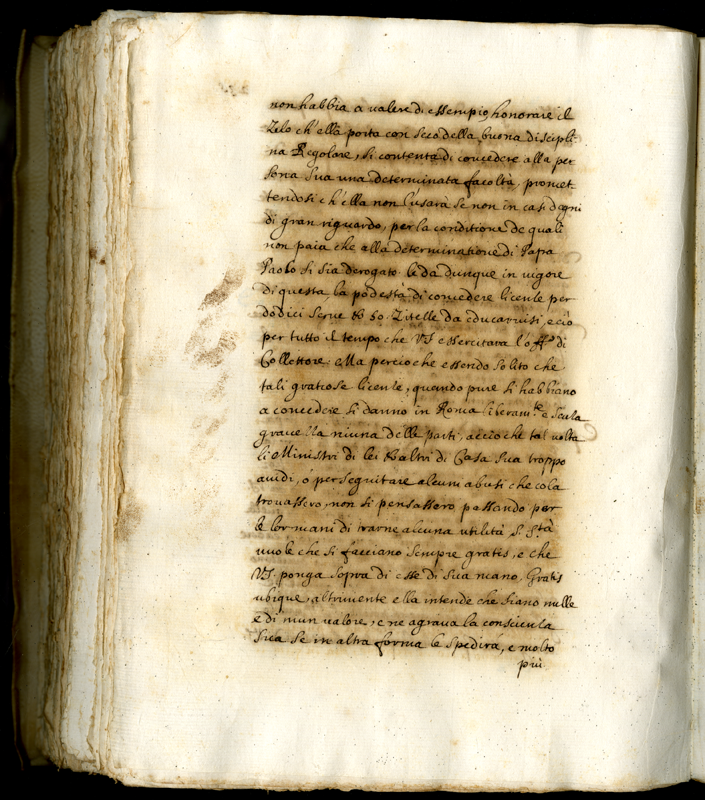 non habbia a valere di essempio, honorare il
Zelo ch'ella porta con seco della buona discipli-
na Regolare, si contenta di concedere alla per
sona Sua una determinata facoltà, promet-
tendosi ch'ella non l'usarà se non in casi degni
di gran riguardo, per la conditione de quali
non paia che alla determinatione di Papa
Paolo si sia derogato. le da dunque in vigore
di questa la podestà di concedere licenze per
dodici Serue et 50. Zitelle da educarvisi, e ciò
per tutto il tempo che VS essercitarà l'off.o di
Collettore. Ma percioche essendo solito che
tali gratiose licenze, quando pure si habbiano
a concedere si danno in Roma liberam.te e senza
gravezza niuna delle parti, acciò che tal volta
li Ministri di lei et altri di Casa Sua troppo
auidi, ò per seguitare alcuni abusi che cola
trovassero, non si pensassero passando per
le lor mani di trarne alcuna utilità S. S.tà
vuole che si facciano sempre gratis, e che
VS. ponga sopra di esse di sua mano, Gratis
ubique, altrimente ella intende che siano nulle
e di niun valore, e ne agrava la conscienza
Sua se in altra forma le spedirà, e molto
più